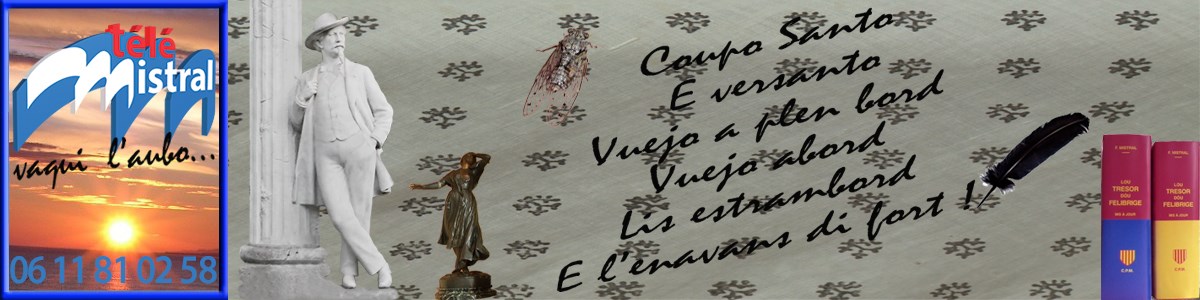 télé
Mistral
vaqui l'aubo...
06 11 81 02 58
Coupo Santo
E versanto
Vuejo a plen bord
Vuejo abord
Lis estrambord
E l'enavans di fort !
F. MISTRAL
LOU
TRESOR
DOU
FELIBRIGE
MIS À JOUR
C.P.M.
F. MISTRAL
LOU
TRESOR
DOU
FELIBRIGE
MIS À JOUR
C.P.M.